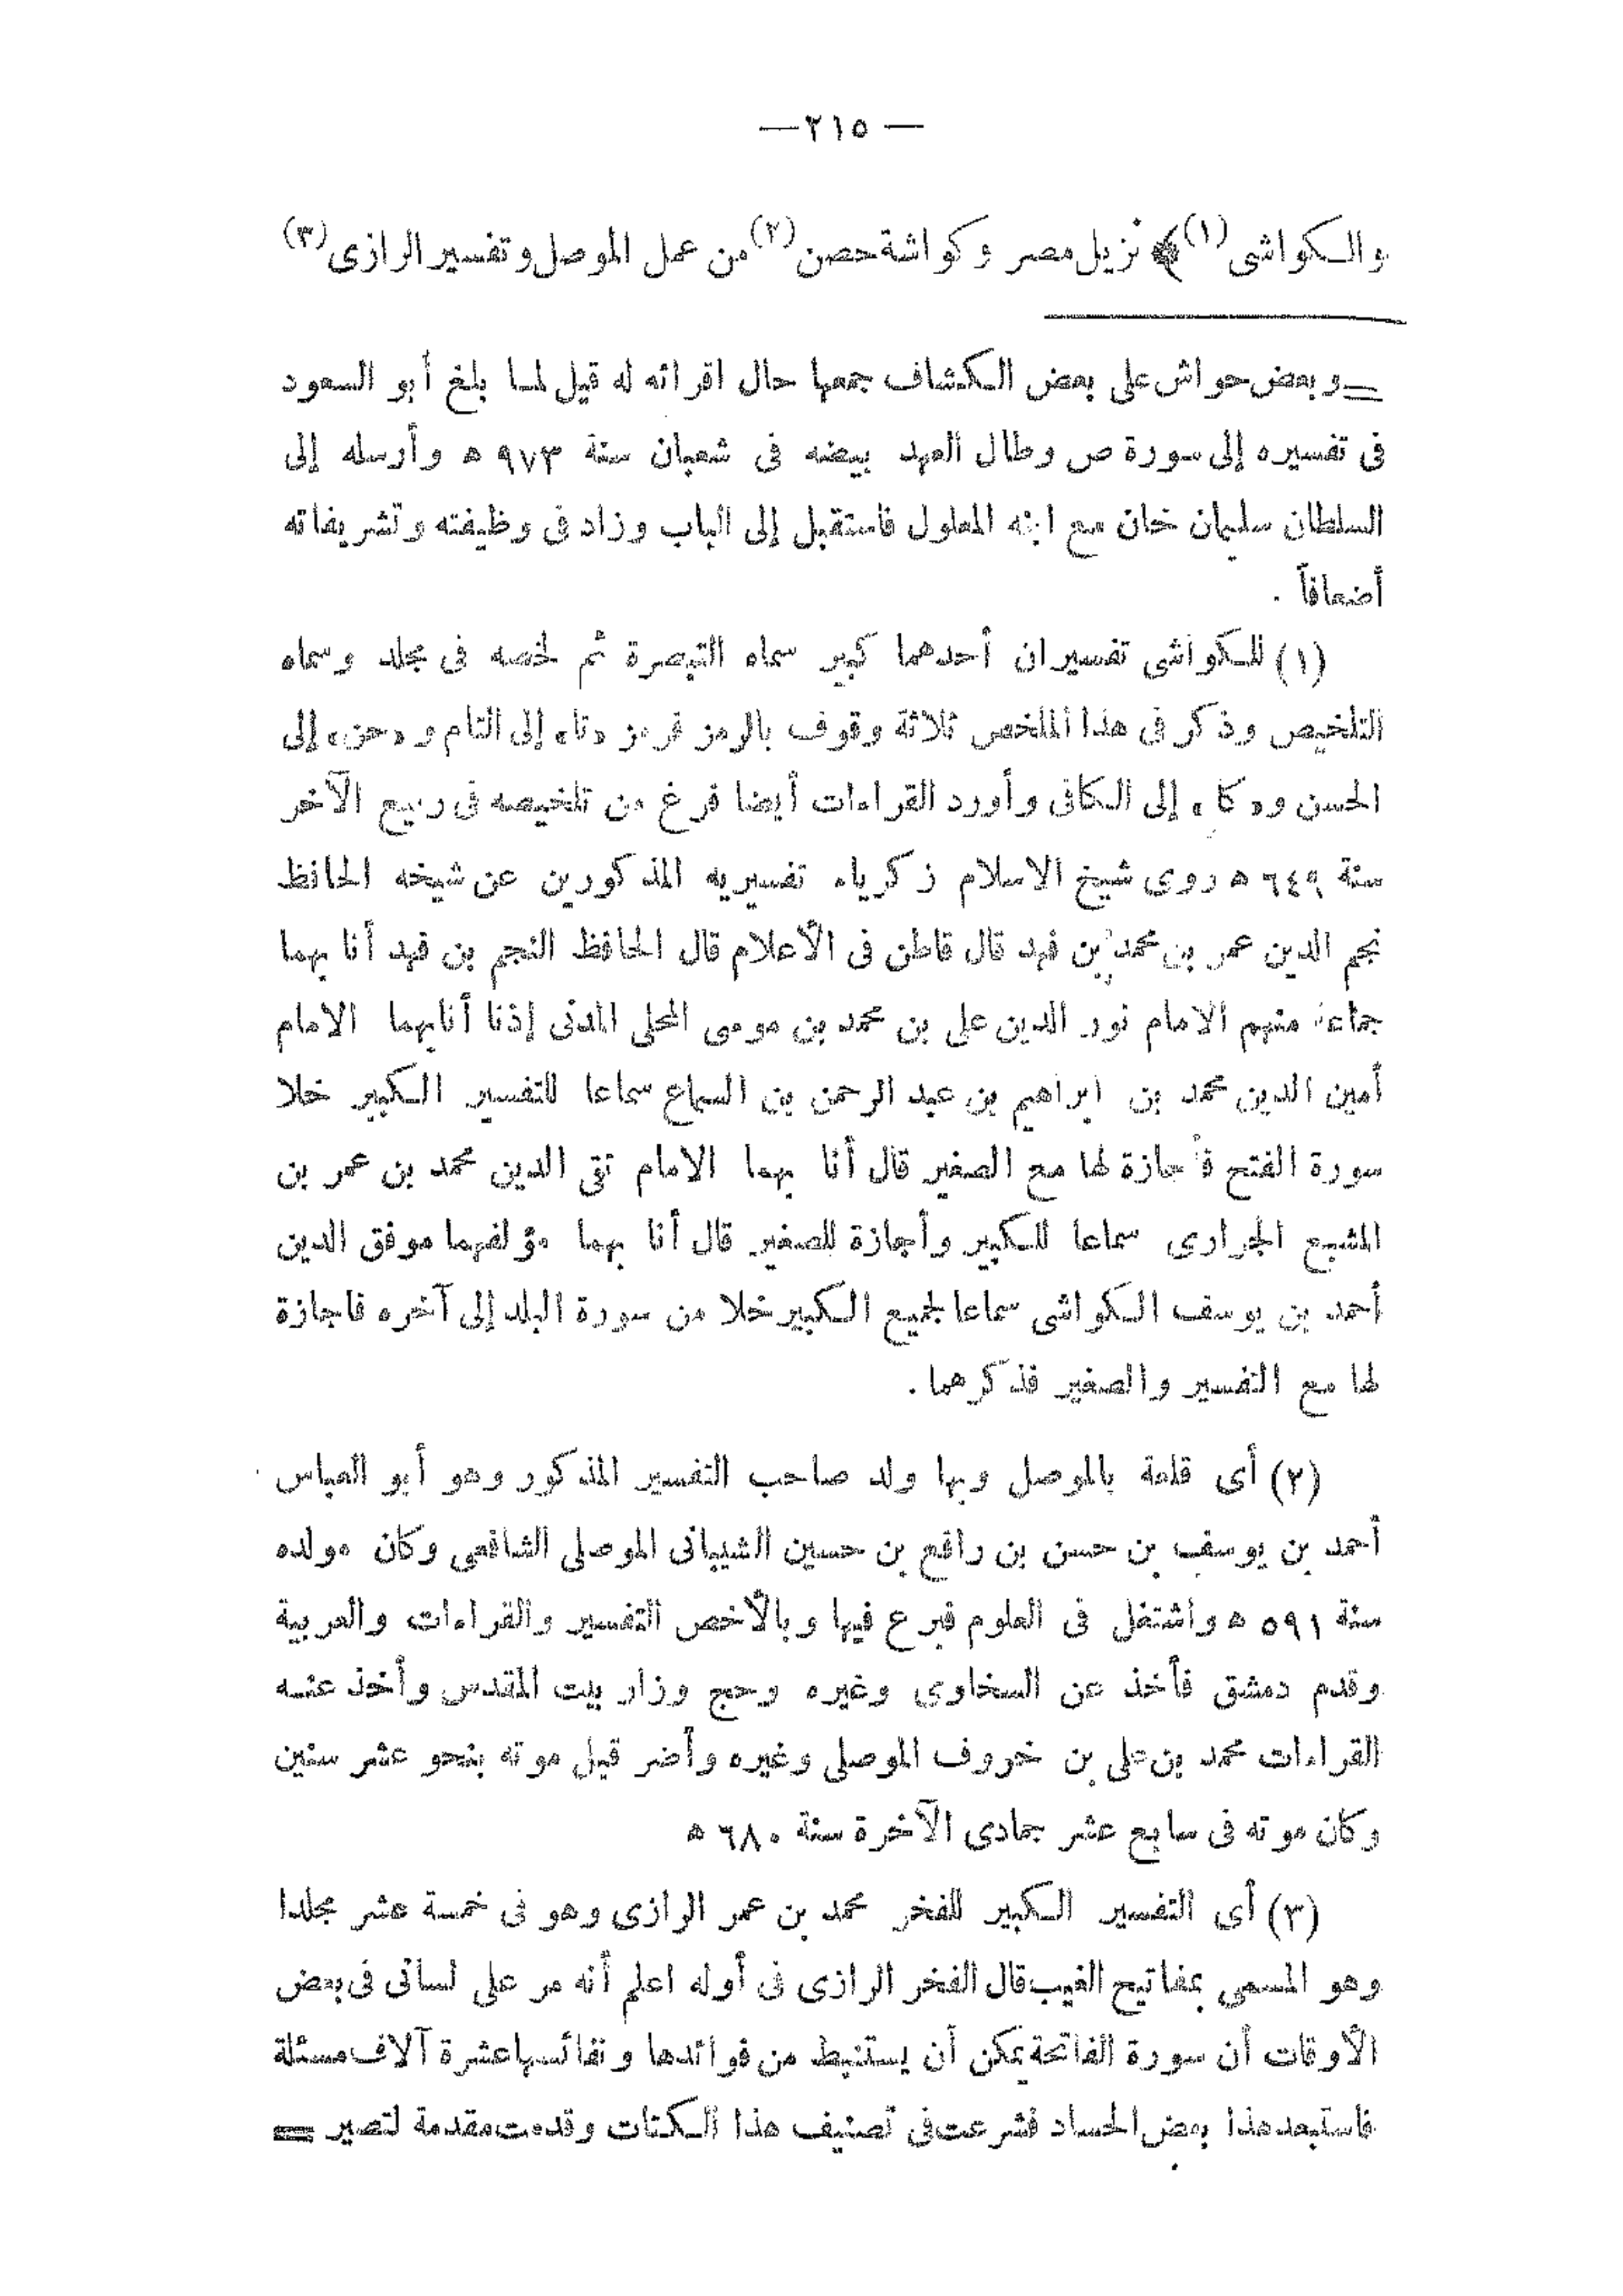 — ٢١٥ —
والكواشى (١) ﴾ نزيل مصر وكواشة حصن (٢) من عمل الموصل وتفسير الرازى (٣)
= وبعض حواش على بعض الكشاف جمعها حال اقرائه له قيل لما بلغ أبو السعود
فى تفسيره إلى سورة ص وطال العهد بيضه فى شعبان سنة ٩٧٣ ه وأرسله إلى
السلطان سليمان خان مع ابنه المعلول فاستقبل إلى الباب وزاد فى وظيفته وتشريفاته
أضعافاً .
(١) للكواشى تفسيران أحدهما كبير سماه التبصرة ثم لخصه فى مجلد وسماه
التلخيص وذكر فى هذا الملخص ثلاثة وقوف بالرمز فرمز «تا» إلى التام و«حن» إلى
الحسن و«كا» إلى الكافى وأورد القراءات أيضا فرغ من تلخيصه فى ربيع الآخر
سنة ٦٤٩ ه روى شيخ الاسلام زكرياء تفسيريه المذكورين عن شيخه الحافظ
نجم الدين عمر بن محمد بن فهد قال قاطن فى الأعلام قال الحافظ النجم بن فهد أنا بهما
جماعة منهم الامام نور الدين على بن محمد بن موسى المحلى المدنى إذنا أنا بهما الامام
أمين الدين محمد بن ابراهيم بن عبد الرحمن بن السماع سماعا للتفسير الكبير خلا
سورة الفتح فأجازة لها مع الصغير قال أنا بهما الامام تقى الدين محمد بن عمر بن
المشبع الجرارى سماعا للكبير وأجازة للصغير قال أنا بهما مؤلفهما موفق الدين
أحمد بن يوسف الكواشى سماعا لجميع الكبير خلا من سورة البلد إلى آخره فاجازة
لها مع التفسير والصغير فذكرهما .
(٢) أى قلعة بالموصل وبها ولد صاحب التفسير المذكور وهو أبو العباس
أحمد بن يوسف بن حسن بن رافع بن حسين الشيبانى الموصلى الشافعى وكان مولده
سنة ٥٩١ ه واشتغل فى العلوم فبرع فيها وبالأخص التفسير والقراءات والعربية
وقدم دمشق فأخذ عن السخاوى وغيره وحج وزار بيت المقدس وأخذ عنه
القراءات محمد بن على بن خروف الموصلى وغيره وأضر قبل موته بنحو عشر سنين
وكان موته فى سابع عشر جمادى الآخرة سنة ٦٨٠ ه
(٣) أى التفسير الكبير للفخر محمد بن عمر الرازى وهو فى خمسة عشر مجلدا
وهو المسمى بمفاتيح الغيب قال الفخر الرازى فى أوله اعلم أنه مر على لسانى فى بعض
الأوقات أن سورة الفاتحة يمكن أن يستنبط من فوائدها ونفائسها عشرة آلاف مسئلة
فاستبعد هذا بعض الحساد فشرعت فى تصنيف هذا الكتات وقدمت مقدمة لتصير =